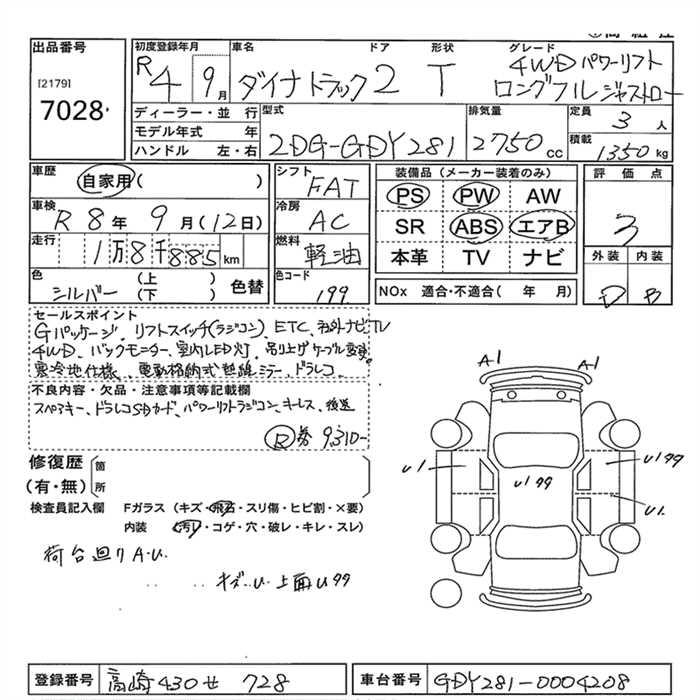 出品番号
[2179]
7028
初度登録年月 車名 ドア 形状 グレード
R4 9月 ダイナトラック 2 T 4WD パワーリフト
ロングフルジャストロー
ディーラー・並 行 型式 排気量 定員 3 人
モデル年式 年 2DG-GDY281 2750 cc
ハンドル 左・右 積載 1350 kg
車歴 自家用( ) シフト FAT 装備品(メーカー装着のみ) 評価点
車検 R 8年 9月(12日) 冷房 AC PS PW AW 3
SR ABS エアB
走行 1万8千885km 燃料 軽油 本革 TV ナビ 外装 内装
色 シルバー (上)(下) 色替 色コード 199 NOx 適合・不適合( 年 月) D B
セールスポイント
Gパッケージ、リフトスイッチ(ラジコン)、ETC、社外ナビTV
4WD、バックモニター、室内LED灯、吊り上げケーブル
寒冷地仕様、電動格納式 ミラー、ドラレコ
不良内容・欠品・注意事項等記載欄
スペアキー、ドラレコSDカード、パワーリフトラジコン、キーレス、後送
R券 9,310-
修復歴 箇
(有・無) 所
検査員記入欄 Fガラス(キズ・飛石・スリ傷・ヒビ割・×要)
内装 (汚リ・コゲ・穴・破レ・キレ・スレ)
荷台廻りA・U
キズ・U 上面U
A1 A1
U1
U1
登録番号 高崎430せ 728 車台番号 GDY281-0004208